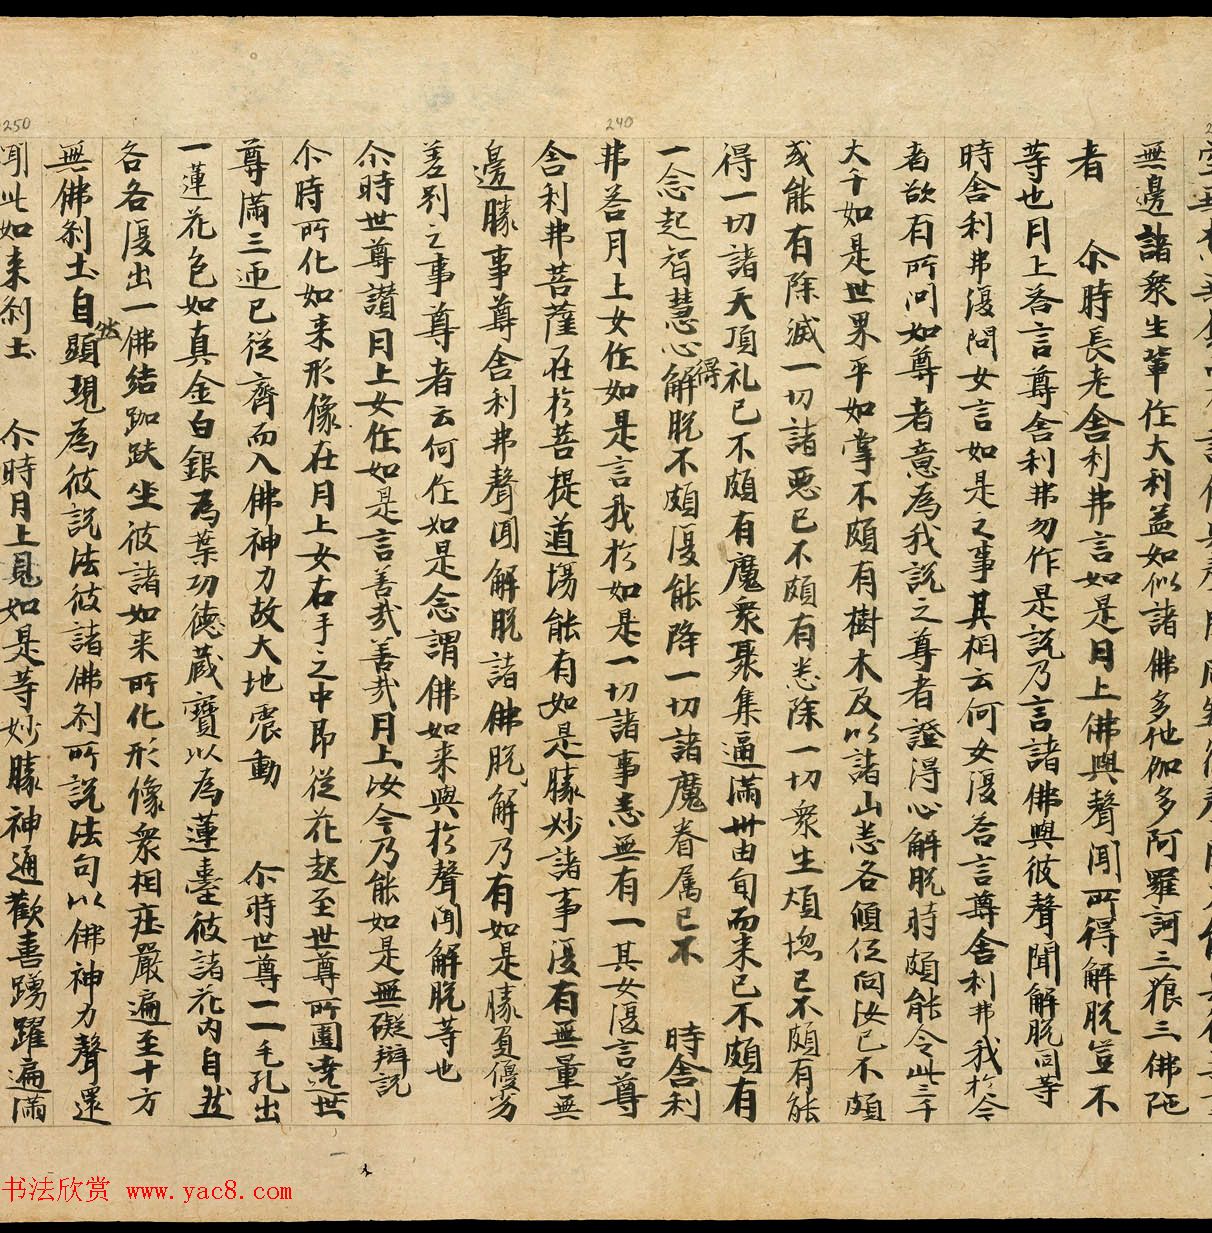 無邊諸衆生輩作大利益如似諸佛多他伽多阿羅訶三㹞三佛陁
者 尒時長老舍利弗言如是月上佛與聲聞所得解脫豈不
等也月上荅言尊舍利弗勿作是説乃言諸佛與彼聲聞解脫同等
時舍利弗復問女言如是之事其相云何女復荅言尊舍利弗我於今
者欲有所問如尊者意為我説之尊者證得心解脫時頗能令此三千
大千如是世界平如掌不頗有樹木及以諸山悉各傾低向汝已不頗
或能有除滅一切諸惡已不頗有悉除一切衆生煩惚已不頗有能
得一切諸天頂礼已不頗有魔衆聚集遍滿卅由旬而来已不頗有
一念起智慧心得解脫不頗復能降一切諸魔眷属已不 時舍利
弗荅月上女作如是言我於如是一切諸事悉無有一其女復言尊
舍利弗菩薩在於菩提道場能有如是勝妙諸事復有無量無
邊勝事尊舍利弗聲聞解脫諸佛脫解乃有如是勝負優劣
差别之事尊者云何作如是念謂佛如来與於聲聞解脫等也
尒時世尊讃月上女作如是言善哉善哉月上汝今乃能如是無礙辯説
尒時所化如来形像在月上女右手之中即從花起至世尊所圍遶世
尊滿三迊已從齊而入佛神力故大地震動 尒時世尊一一毛孔出
一蓮花色如真金白銀為葉功德蔵寶以為蓮臺彼諸花内自然
各各復出一佛結跏趺坐彼諸如来所化形像衆相庄嚴遍至十方
無佛刹土自然顯現為彼説法彼諸佛刹所説法句以佛神力聲還
聞此如来刹土 尒時月上見如是等妙勝神通歡喜踴躍遍滿
240
250
书法欣赏 www.yac8.com